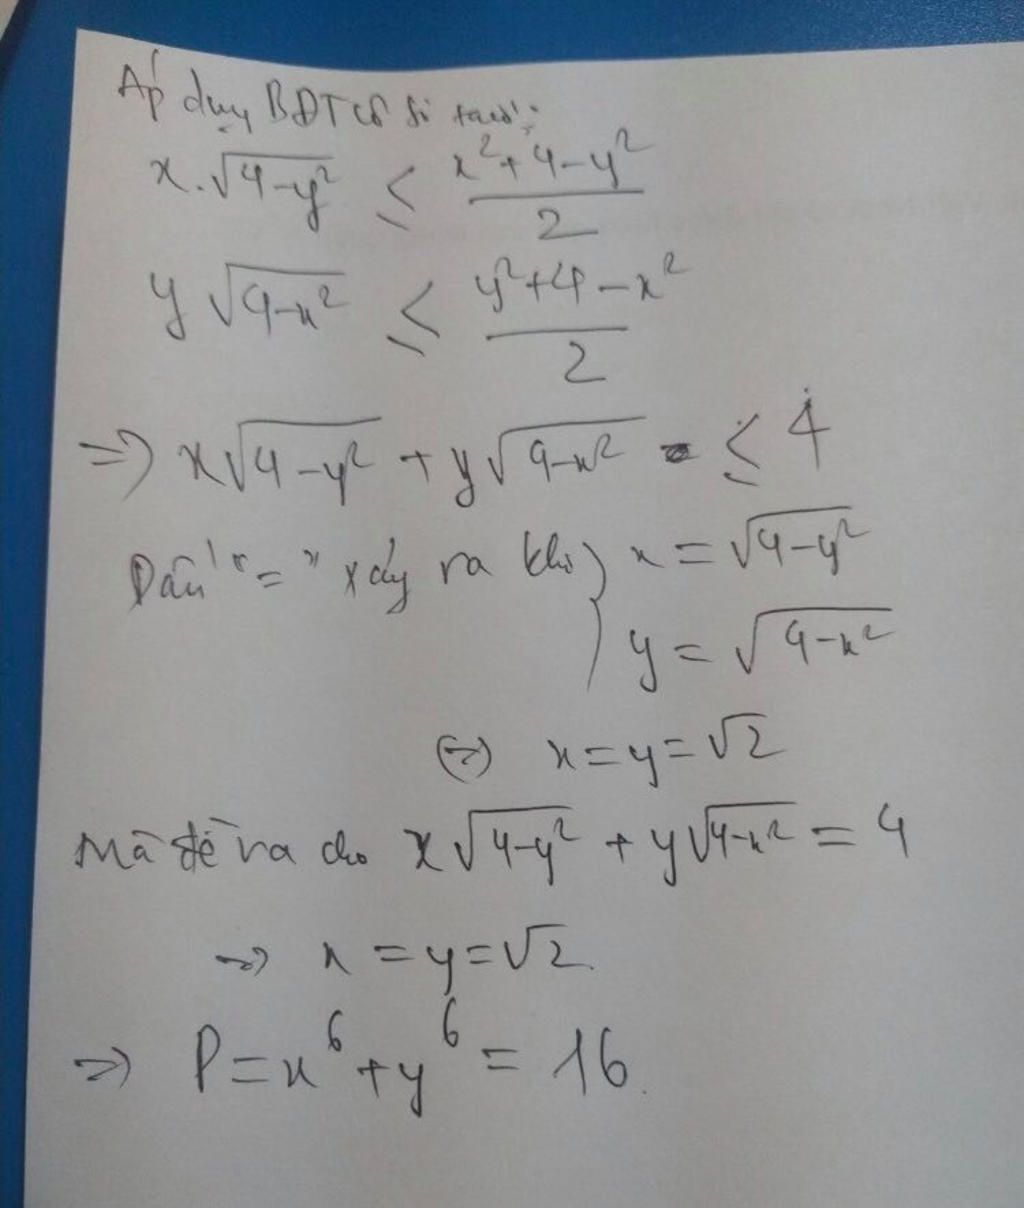 Áp dụng BĐT Cô Si ta có:
x.√(4-y²) ≤ (x²+4-y²)/2
y√(4-x²) ≤ (y²+4-x²)/2
=> x√(4-y²) + y√(4-x²) ≤ 4
Dấu "=" xảy ra khi { x = √(4-y²)
y = √(4-x²)
(=>) x=y=√2
Mà đề ra cho x√(4-y²) + y√(4-x²) = 4
=> x = y = √2.
=> P = x⁶ + y⁶ = 16.